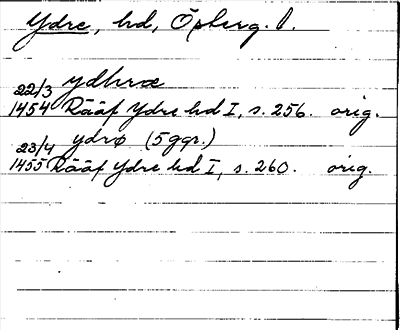 Ydre, hd, Österg. l.
22/3 ydhræ
1454 Rääf Ydre hd I, s. 256. orig.
23/4 ydrø (5 ggr.)
1455 Rääf Ydre hd I, s. 260. orig.